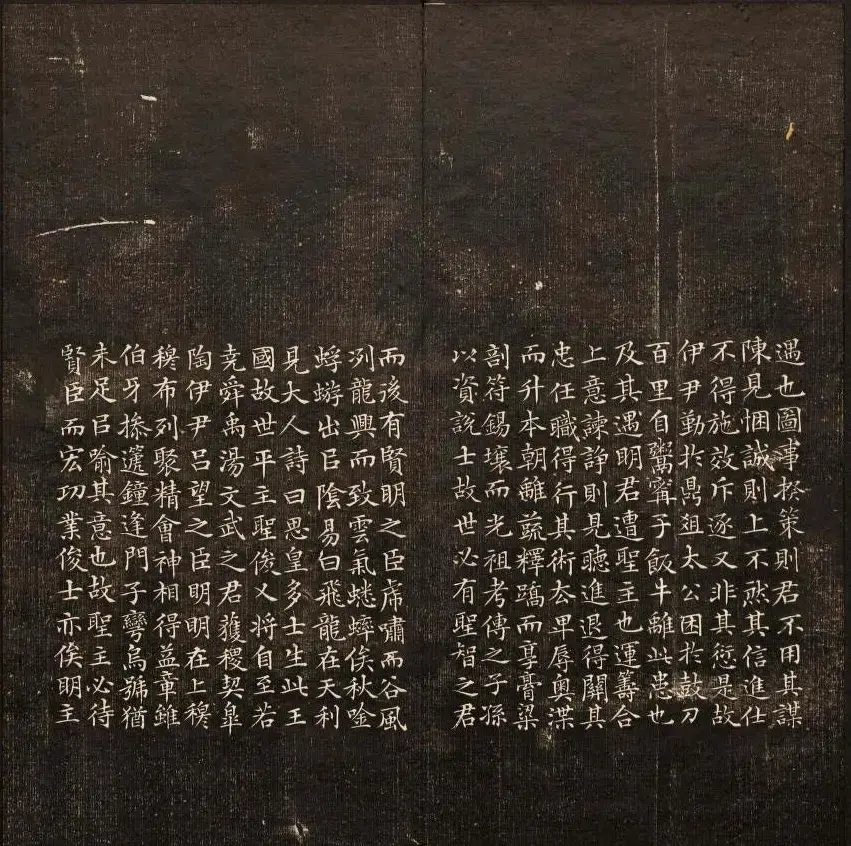 遇也圖事揆策則君不用其謀
陳見悃誠則上不然其信進仕
不得施效斥逐又非其愆是故
伊尹勤於鼎俎太公困於鼓刀
百里自鬻甯子飯牛離此患也
及其遇明君遭聖主也運籌合
上意諫諍則見聽進退得關其
忠任職得行其術去卑辱奧渫
而升本朝離蔬釋蹻而享膏粱
剖符錫壤而光祖考傳之子孫
以資說士故世必有聖智之君
而後有賢明之臣虎嘯而谷風
冽龍興而致雲氣蟋蟀俟秋唫
蜉蝣出㠯陰易曰飛龍在天利
見大人詩曰思皇多士生此王
國故世平主聖俊乂將自至若
堯舜禹湯文武之君獲稷契皐
陶伊尹呂望之臣明明在上穆
穆布列聚精會神相得益章雖
伯牙操遞鐘逢門子彎烏號猶
未足㠯喻其意也故聖主必待
賢臣而宏功業俊士亦俟明主